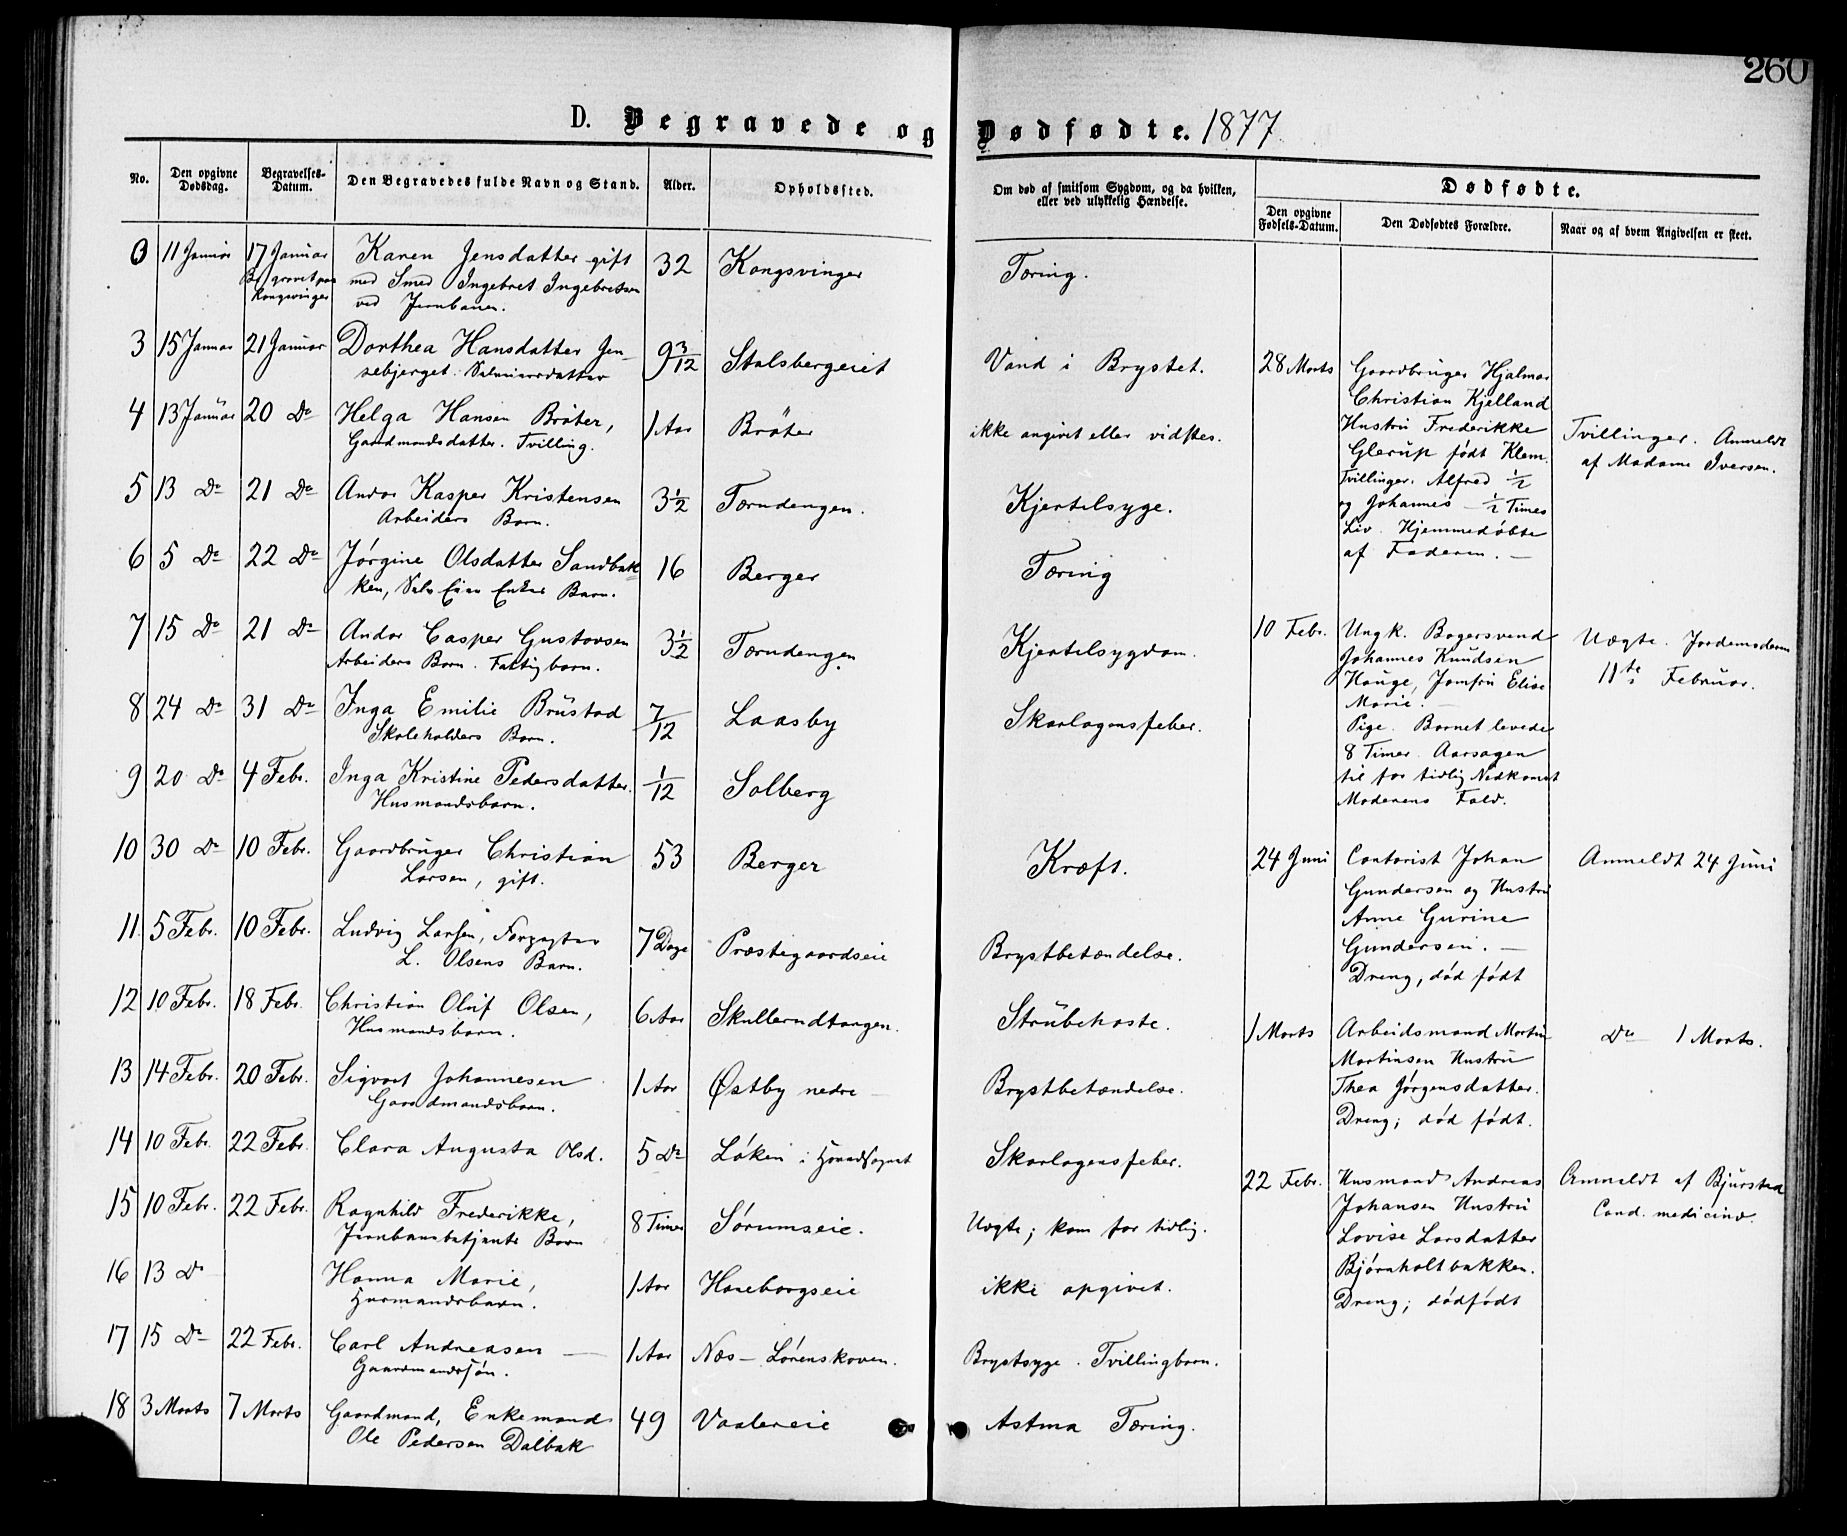 260
D. Begravede og Dødfødte. 1877.
No.
Den opgivne Dødsdag.
Begravelses-Datum.
Den Begravedes fulde Navn og Stand.
Alder.
Opholdssted.
Om død af smitsom Sygdom, og da hvilken, eller ved ulykkelig Hændelse.
Dødfødte.
Den opgivne Fødsels-Datum.
Den Dødfødtes Forældre.
Naar og af hvem Angivelsen er skeet.
0 11 Januar 17 Januar Karen Jensdatter gift 32 Kongsvinger Tæring.
Begravet paa Kongsvinger med Smed Ingebret Ingebretsen
ved Jernbanen.
3 15 Januar 21 Januar Dorthea Hansdatter Jen- 9 3/12 Stalsbergeiet Vand i Brystet.
sebjerget.
4 13 Januar 20 Do Helga Hansen Bråter, 1 Aar Bråter ikke angivet eller vidstes.
Gaardmandsdatter. Tvilling.
5 13 Do 21 Do Andor Kasper Kristensen 3 1/2 Tærudengen. Kjertelsyge.
Arbeiders Barn.
6 5 Do 22 Do Jørgine Olsdatter Sandbak- 16 Berger Tæring
ken, Enkes Barn.
7 15 Do 21 Do Andor Casper Gustavsen 3 1/2 Tærudengen Kjertelsygdom.
Arbeiders Barn. Fattigbarn.
8 24 Do 31 Do Inga Emilie Brustad 7/12 Laasby Skarlagensfeber.
Skoleholders Barn.
9 20 Do 4 Febr. Inga Kristine Pedersdatter. 1/12 Solberg
Husmandsbarn.
10 30 Do 10 Febr. Gaardbruger Christian 53 Berger Kræft.
Larsen, gift.
11 5 Febr. 10 Febr. Ludvig Larsen, Forpagter 7 Dage Præstegaardseie Brystbetændelse.
L. Olsens Barn.
12 10 Febr. 18 Febr. Christian Oluf Olsen, 6 Aar Skullerudtangen. Strubehoste.
Husmandsbarn.
13 14 Febr. 20 Febr. Sigvart Johannesen 1 Aar Østby nedre Brystbetændelse.
Gaardmandsbarn.
14 10 Febr. 22 Febr. Clara Augusta Olsd. 5 Do Løken i Skarlagensfeber.
15 10 Febr. 22 Febr. Ragnhild Frederikke, 8 Timer Sørumseie. Uægte; kom for tidlig.
Jernbanebetjents Barn
16 13 Do Hanna Marie, 1 Aar Haneborgseie ikke opgivet.
Husmandsbarn.
17 15 Do 22 Febr. Carl Andreasen 1 Aar Næs - Lørenskoven. Brystsyge. Tvillingbarn.
Gaardmandssøn.
18 3 Marts 7 Marts Gaardmand, Enkemand 49 Vaalereie Astma Tæring.
Ole Pedersen Dalbak
28 Marts Gaardbruger Hjalmar
Christian Kjelland
Hustru Frederikke
Glerup født Klem.
Tvillinger. Alfred 1/2
og Johannes - 1/2 Times
Liv. Hjemmedøbte
af Faderen.
Tvillinger. Anmeldt
af Madame Iversen.
10 Febr. Ungk. Bagersvend
Johannes Knudsen
Hauge, Jomfru Elise
Marie.
Pige. Barnet levede
8 Timer. Aarsagen
til for tidlig Nedkomst
Moderens Fald.
Uægte. Jordemoderen
11te Februar.
24 Juni Contorist Johan
Gundersen og Hustru
Anne Gurine
Gundersen.
Dreng, død født
Anmeldt 24 Juni
1 Marts Arbeidsmand Martin
Martinsen Hustru
Thea Jørgensdatter.
Dreng; død født.
Do 1 Marts.
22 Febr. Husmand Andreas
Johansen Hustru
Lovise Larsdatter
Bjørnholtbakken.
Dreng; dødfødt
Anmeldt af Bjursted
Cand. medicind.